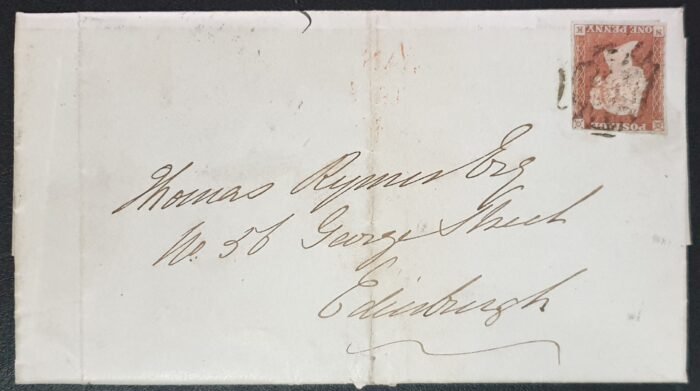 ONE PENNY
POSTAGE
Thomas Rymer Esq
No. 56 George Street
Edinburgh